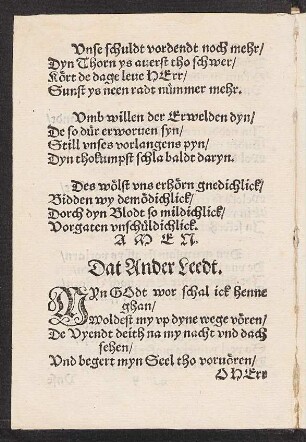 Vnse schuldt vordendt noch mehr/
Dyn Thorn ys auerst tho schwer/
Kört de dage leue HErr/
Sunst ys neen radt nümmer mehr.
Vmb willen der Erwelden dyn/
De so dür erworuen syn/
Still vnses vorlangens pyn/
Dyn thokumpst schla baldt daryn.
Des wölst vns erhörn gnedichlick/
Bidden wy demödichlick/
Dorch dyn Blodt so mildichlick/
Vorgaten vnschüldichlick.
A M E N.
Dat Ander Leedt.
MYn GOdt wor schal ick henne
ghan/
Woldest my vp dyne wege vören/
De Vyendt deith na my nacht vnd dach
sehen/
Vnd begert myn Seel tho voruören/
O HErr